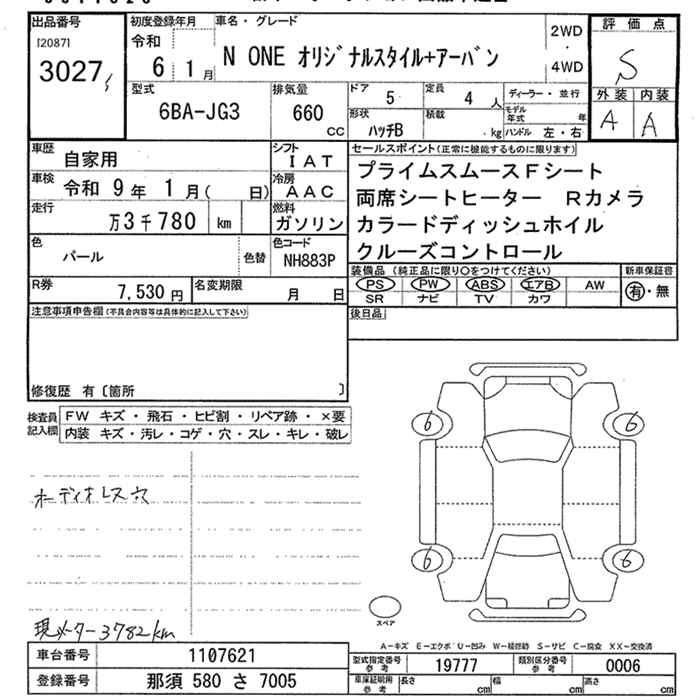 出品番号
[2087]
3027
初度登録年月
令和
6 1 月
車名・グレード
N ONE オリジナルスタイル+アーバン
2WD
・
4WD
評価点
S
外装 内装
A A
型式
6BA-JG3
排気量
660
CC
ドア 5
定員 4 人
形状 ハッチB
積載 kg
ディーラー・並行
モデル年式 年
ハンドル 左・右
車歴 自家用
シフト IAT
車検 令和 9 年 1 月( 日)
冷房 AAC
走行 万3千780 km
燃料 ガソリン
色 パール
色替
色コード NH883P
R券 7,530 円
名変期限 月 日
セールスポイント(正常に機能するものに限ります)
プライムスムースFシート
両席シートヒーター Rカメラ
カラードディッシュホイル
クルーズコントロール
装備品 (純正品に限り○をつけてください)
新車保証書
PS PW ABS エアB AW
SR ナビ TV カワ
有・無
後日品
注意事項申告欄(不具合内容等は具体的に記入して下さい)
修復歴 有〔箇所 〕
検査員記入欄
FW キズ・飛石・ヒビ割・リペア跡・×要
内装 キズ・汚レ・コゲ・穴・スレ・キレ・破レ
オーディオレス穴
現メーター3782km
6 6
6 6
スペア
A－キズ E－エクボ U－凹み W－補修跡 S－サビ C－腐食 XX－交換済
車台番号 1107621
登録番号 那須 580 さ 7005
型式指定番号 参考 19777
類別区分番号 参考 0006
車庫証明用 参考 長さ cm 幅 cm 高さ cm